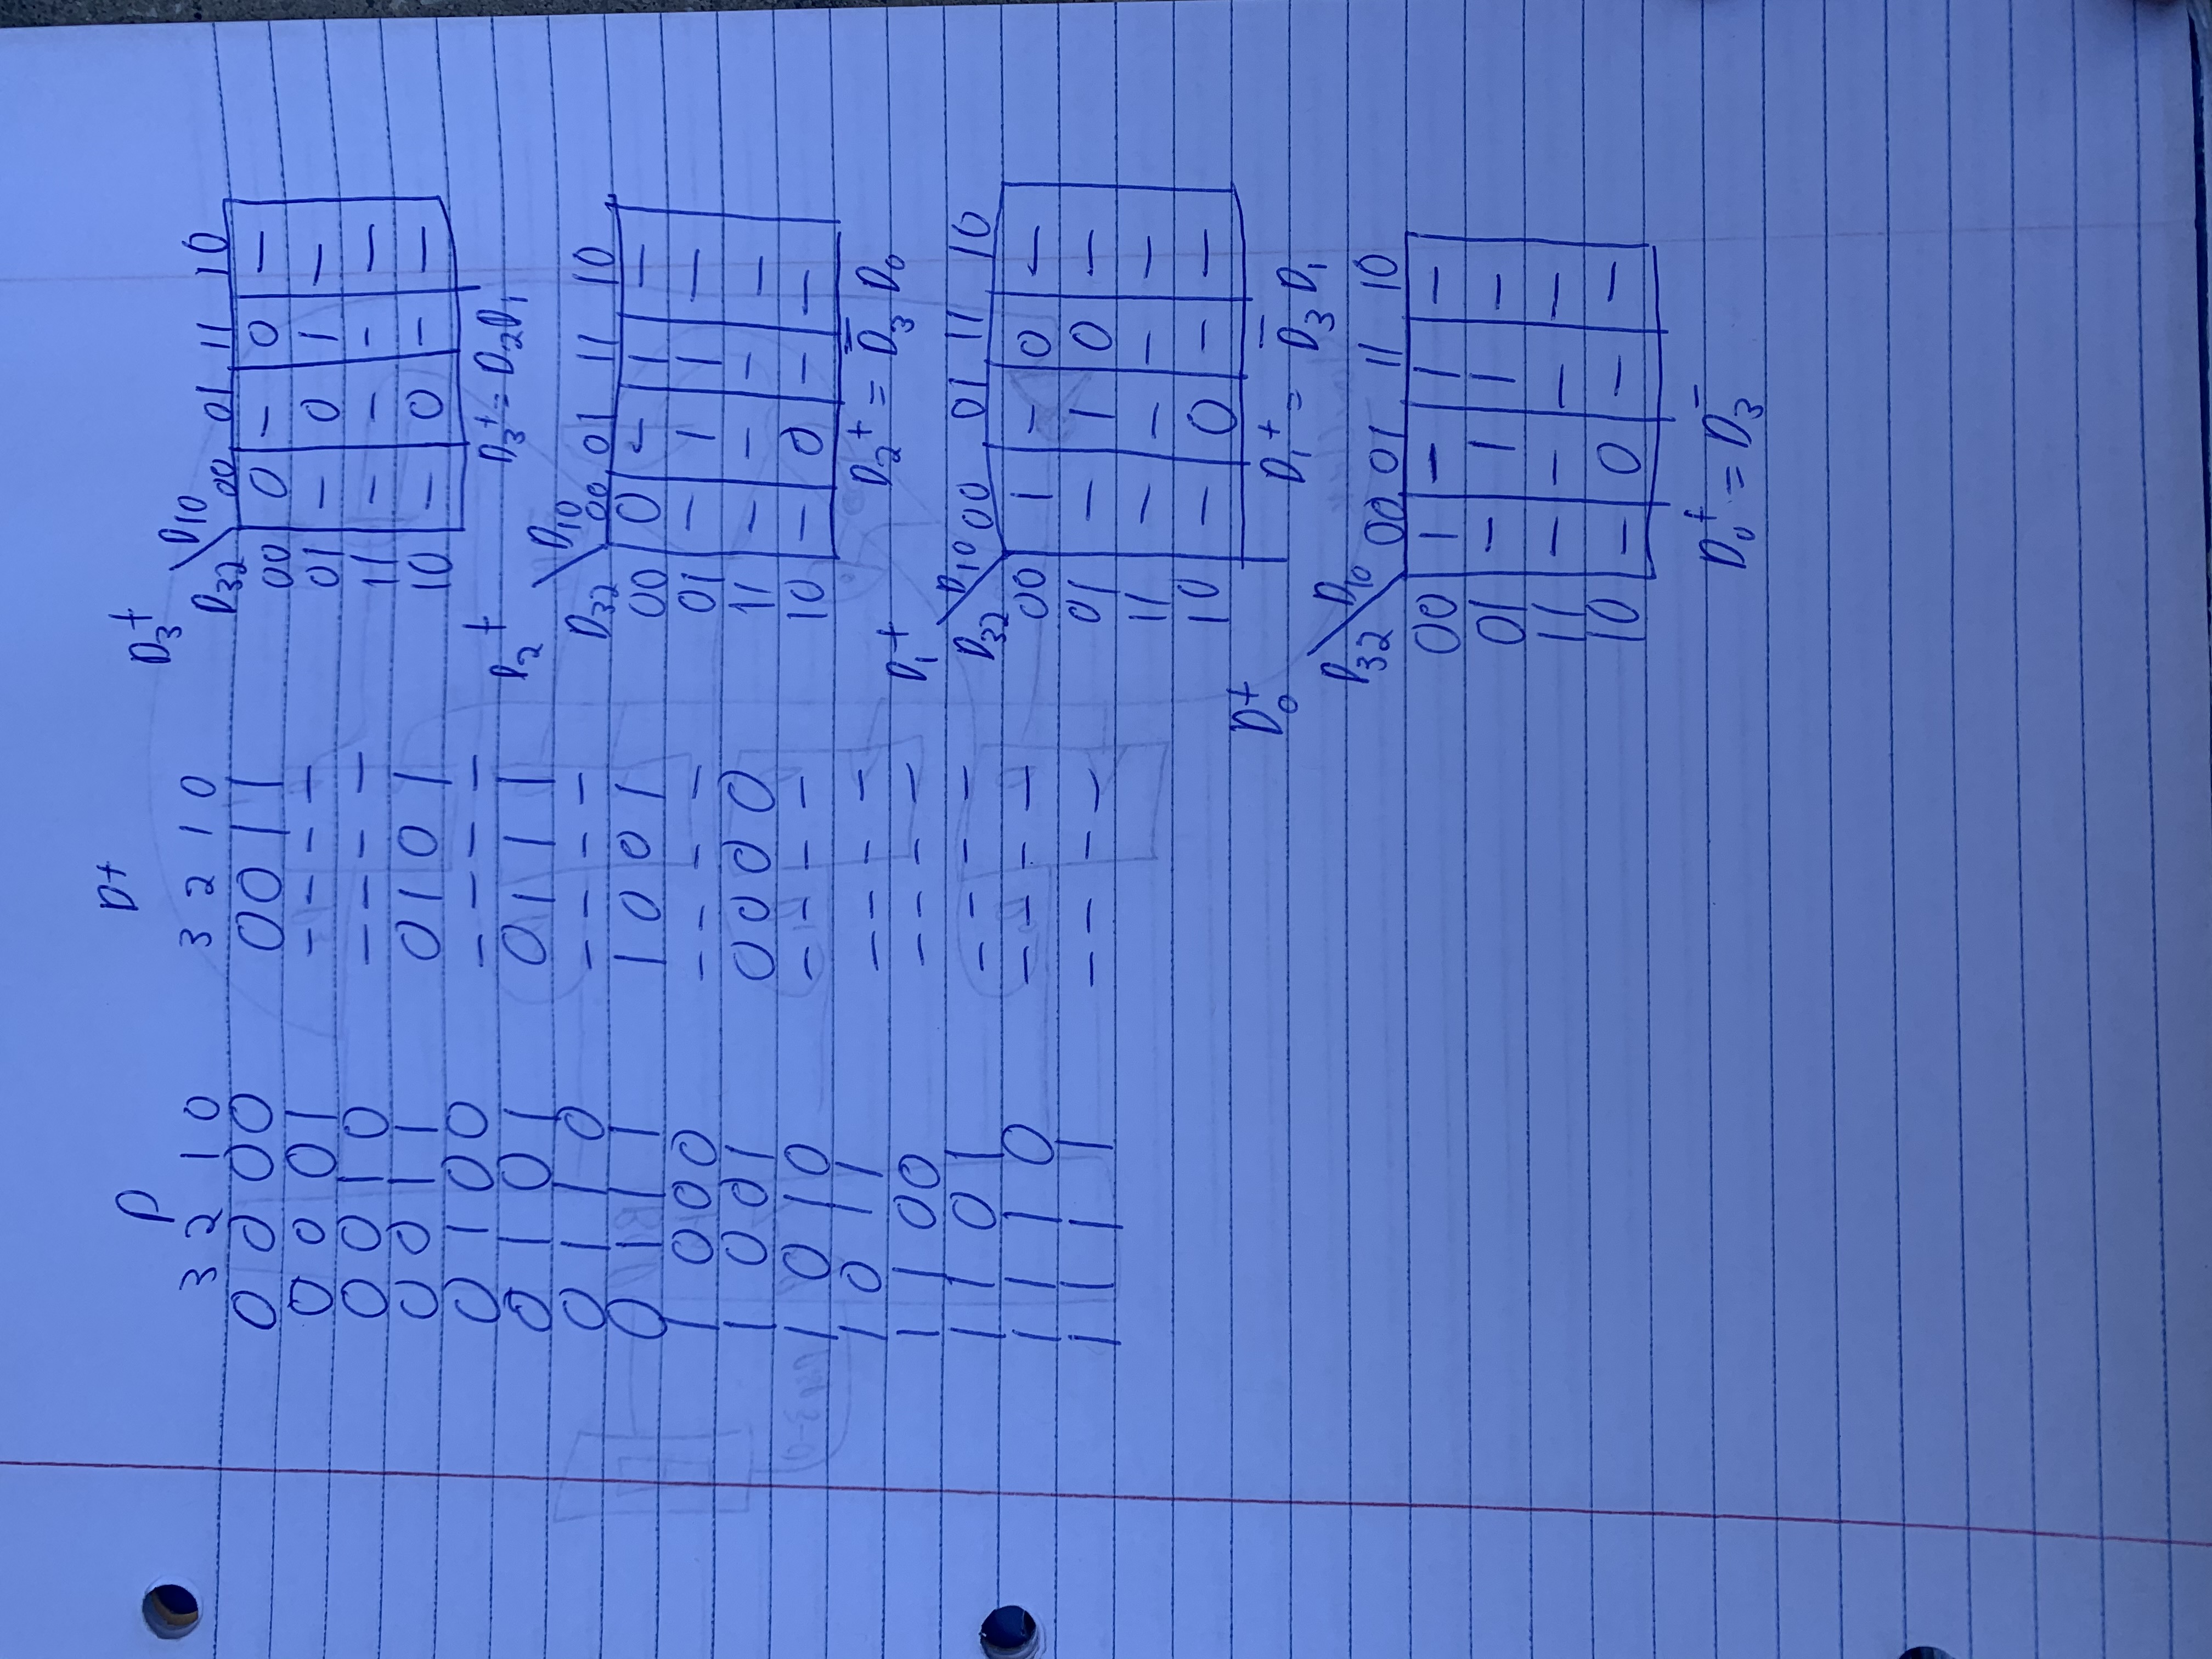 D D+
3 2 1 0 3 2 1 0
0 0 0 0 0 0 1 1
0 0 0 1 - - - -
0 0 1 0 - - - -
0 0 1 1 0 1 0 1
0 1 0 0 - - - -
0 1 0 1 0 1 1 1
0 1 1 0 - - - -
0 1 1 1 1 0 0 1
1 0 0 0 - - - -
1 0 0 1 0 0 0 0
1 0 1 0 - - - -
1 0 1 1 - - - -
1 1 0 0 - - - -
1 1 0 1 - - - -
1 1 1 0 - - - -
1 1 1 1 - - - -
D₃⁺
D₁₀
D₃₂ 00 01 11 10
00 0 - 0 -
01 - 0 1 -
11 - - - -
10 - 0 - -
D₃⁺ = D₂D₁
D₂⁺
D₁₀
D₃₂ 00 01 11 10
00 0 - 1 -
01 - 1 1 -
11 - - - -
10 - 0 - -
D₂⁺ = D̅₃ D₀
D₁⁺
D₁₀
D₃₂ 00 01 11 10
00 1 - 0 -
01 - 1 0 -
11 - - - -
10 - 0 - -
D₁⁺ = D̅₃ D₁
D₀⁺
D₁₀
D₃₂ 00 01 11 10
00 1 - 1 -
01 - 1 1 -
11 - - - -
10 - 0 - -
D₀⁺ = D̅₃